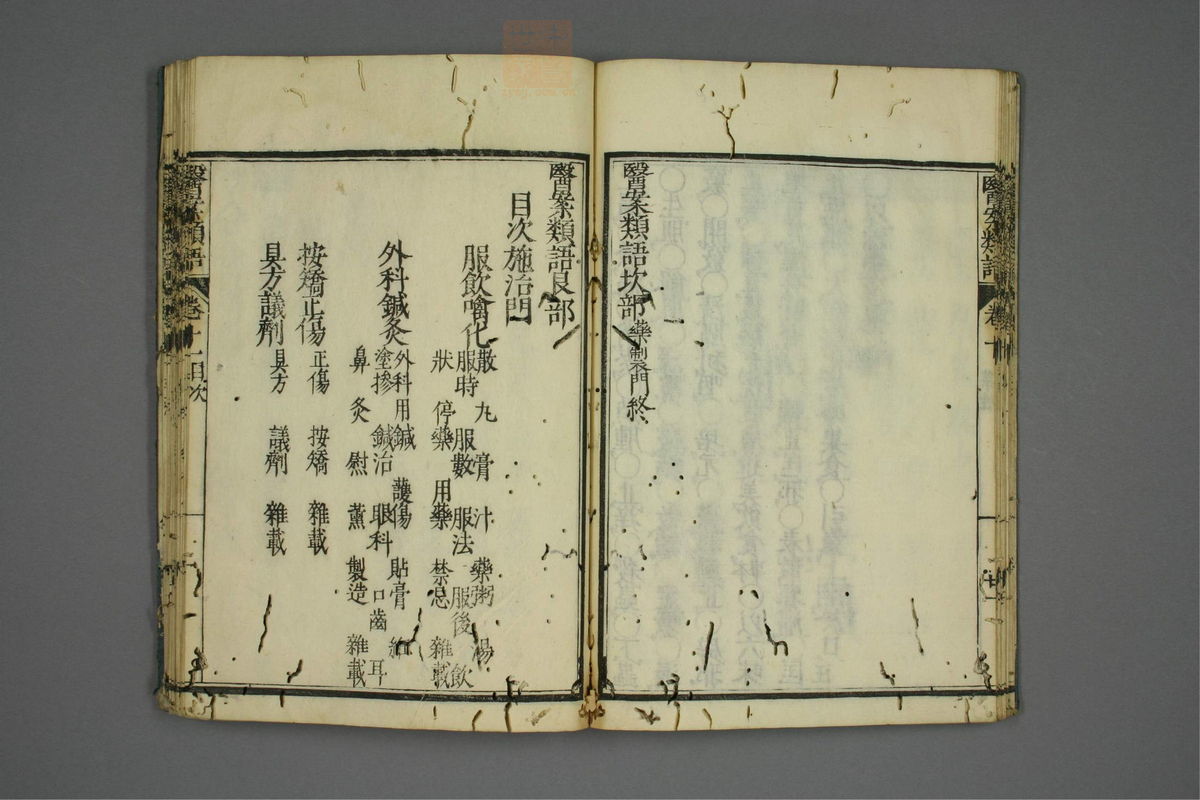 醫案類語 卷十
醫案類語坎部 藥製門終
醫案類語艮部
目次施治門
服飲噙化
散 丸 膏 汁 藥粥 湯 飲
服時 服數 服法 服後
狀 停藥 用藥 禁忌 雜載
外科鍼灸
外科 用鍼 護傷 貼膏
塗摻 鍼治 眼科 口齒 耳
鼻 灸 慰 薰 製造 雜載
按矯正傷
正傷 按矯 雜載
具方議劑
具方 議劑 雜載
醫案類語 卷十一目次